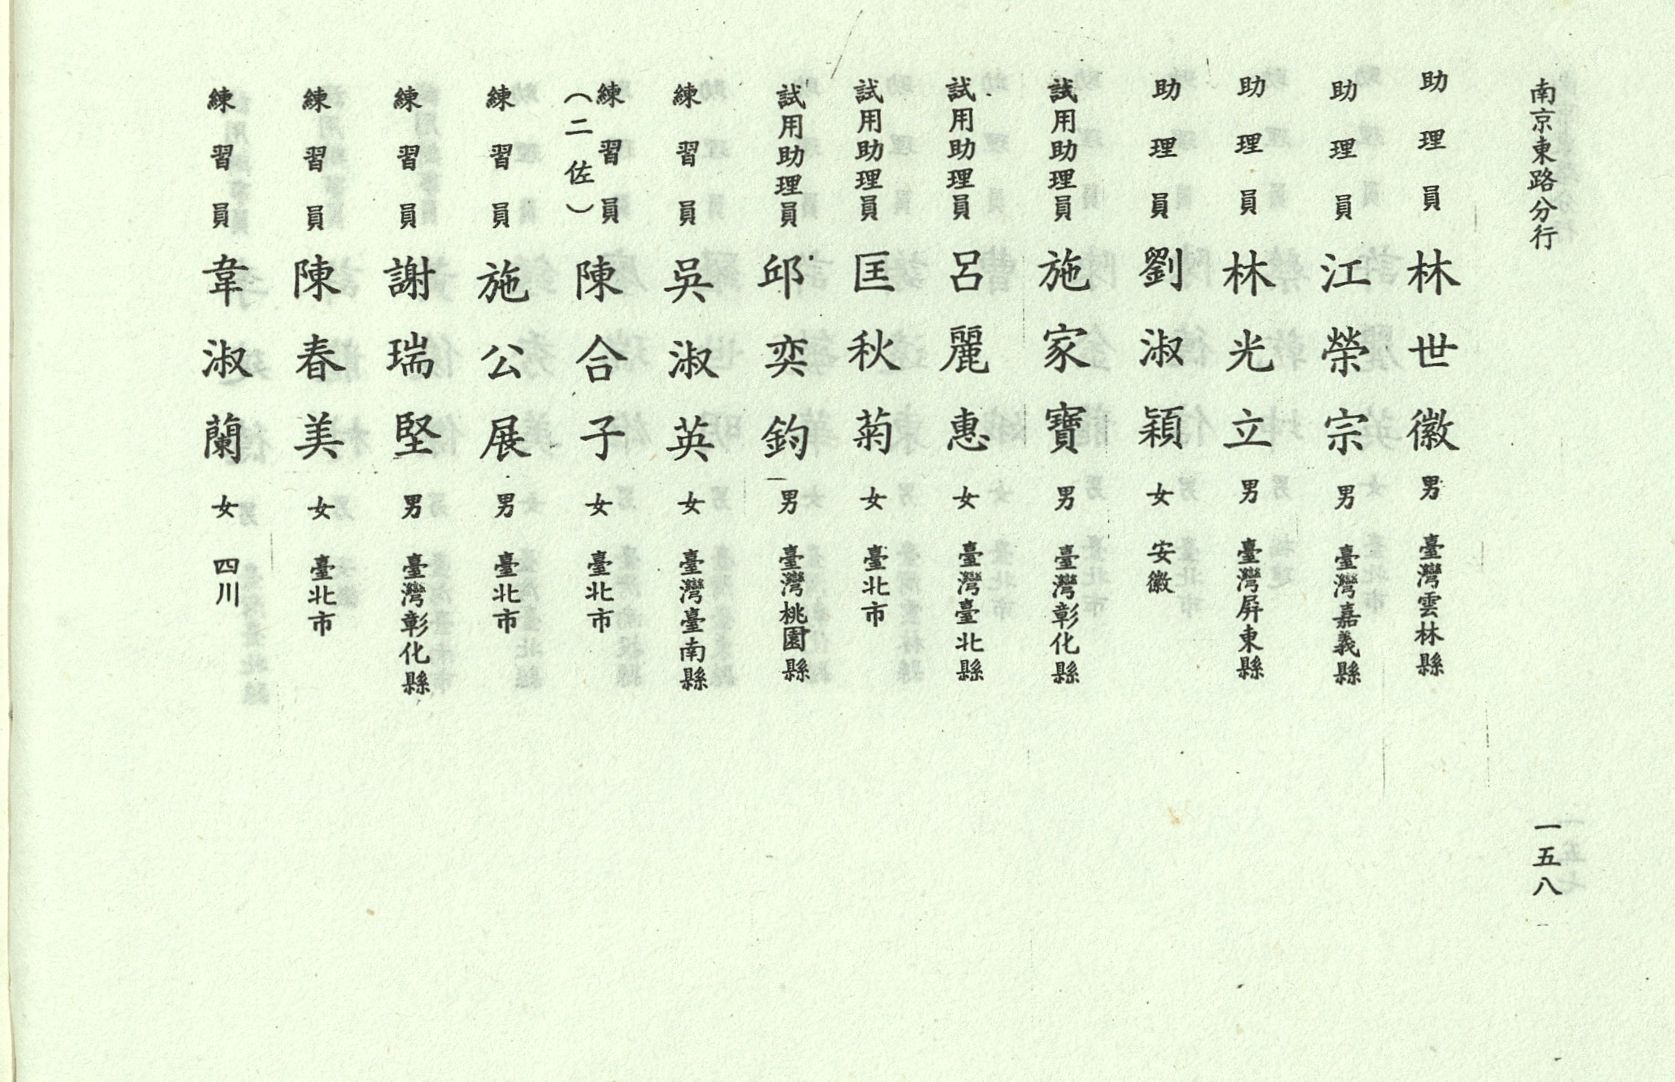 南京東路分行
一五八
助理員 林世徽 男 臺灣雲林縣
助理員 江榮宗 男 臺灣嘉義縣
助理員 林光立 男 臺灣屏東縣
助理員 劉淑穎 女 安徽
試用助理員 施家寶 男 臺灣彰化縣
試用助理員 呂麗惠 女 臺灣臺北縣
試用助理員 匡秋菊 女 臺北市
試用助理員 邱奕鈞 男 臺灣桃園縣
練習員 吳淑英 女 臺灣臺南縣
練習員（二佐） 陳合子 女 臺北市
練習員 施公展 男 臺北市
練習員 謝瑞堅 男 臺灣彰化縣
練習員 陳春美 女 臺北市
練習員 韋淑蘭 女 四川